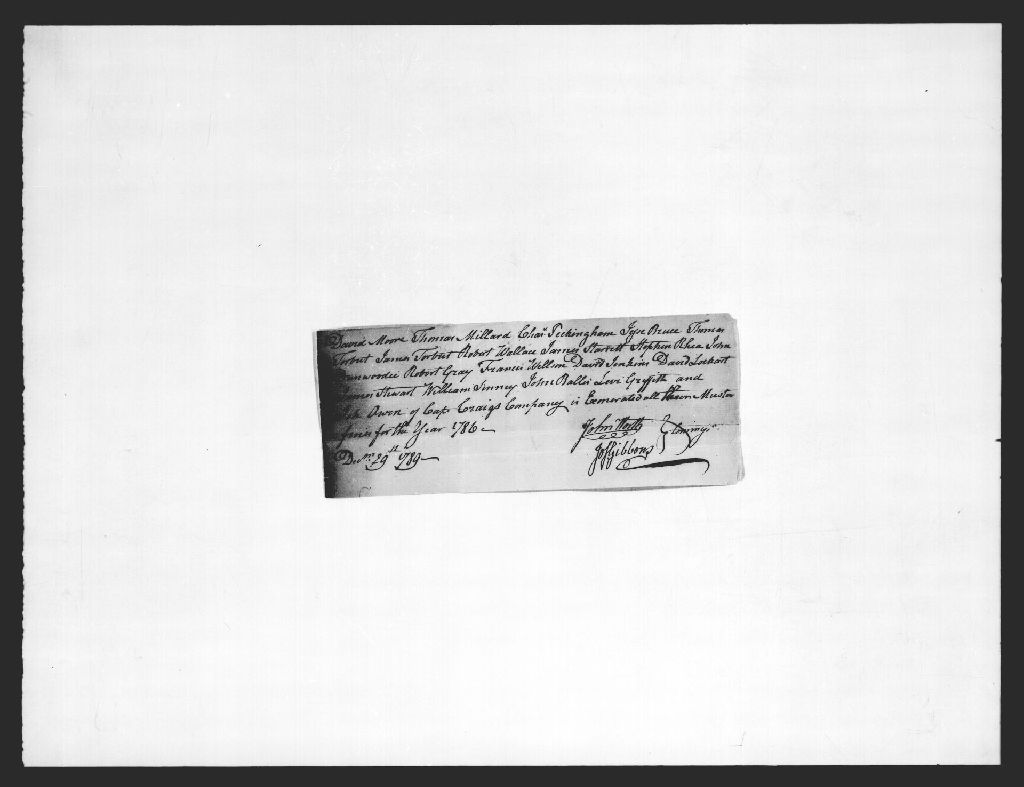 David Moore Thomas Millard Chas Peckingham Jesse Bruce Thomas
Torbert James Torbert Robert Wallace James Starrett Stephen Rhea John
Robert Gray Francis Wellson David Jenkins David Lockart
James Stewart William Finney John Ralls Levi Griffith and
Owen of Capt Craigs Company is Exonerated all their Muster
fines for the Year 1786
John Wells
Comm
Jos Gibbons
Decr 29th 1789